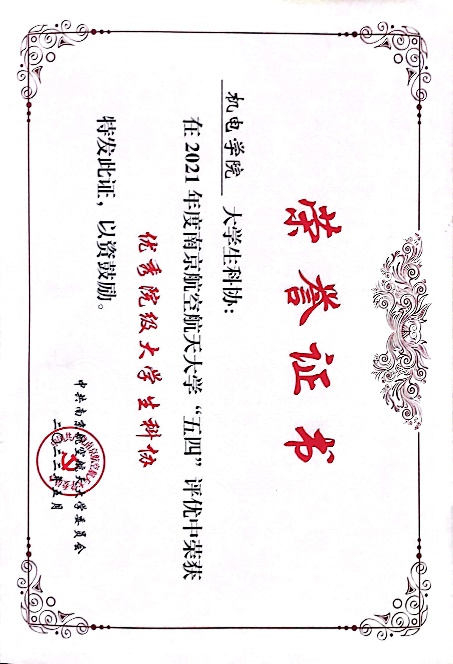 荣誉证书
机电学院 大学生科协:
在 2021 年度南京航空航天大学“五四”评优中荣获
优秀院级大学生科协
特发此证，以资鼓励。
中共南京航空航天大学委员会
二〇二二年五月